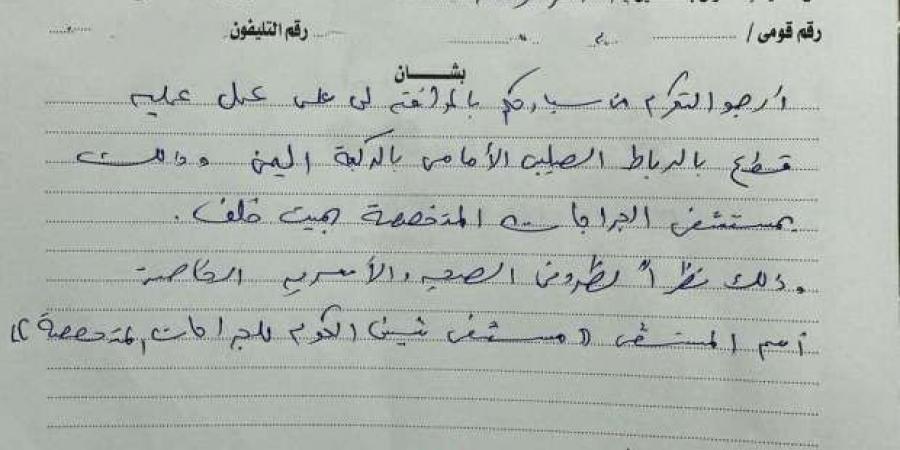 رقم قومى / رقم التليفون
بشــــان
أرجو التكرم من سيادتكم بالموافقة لى على عمل عمليه
قطع بالرباط الصليبى الأمامى بالركبة اليمنى وذلك
بمستشفى الجراحات المتخصصة بميت خلف.
وذلك نظراً لظروفى الصحيه والأسريه الخاصة
أسم المستشفى (( مستشفى شبين الكوم للجراحات المتخصصة ))